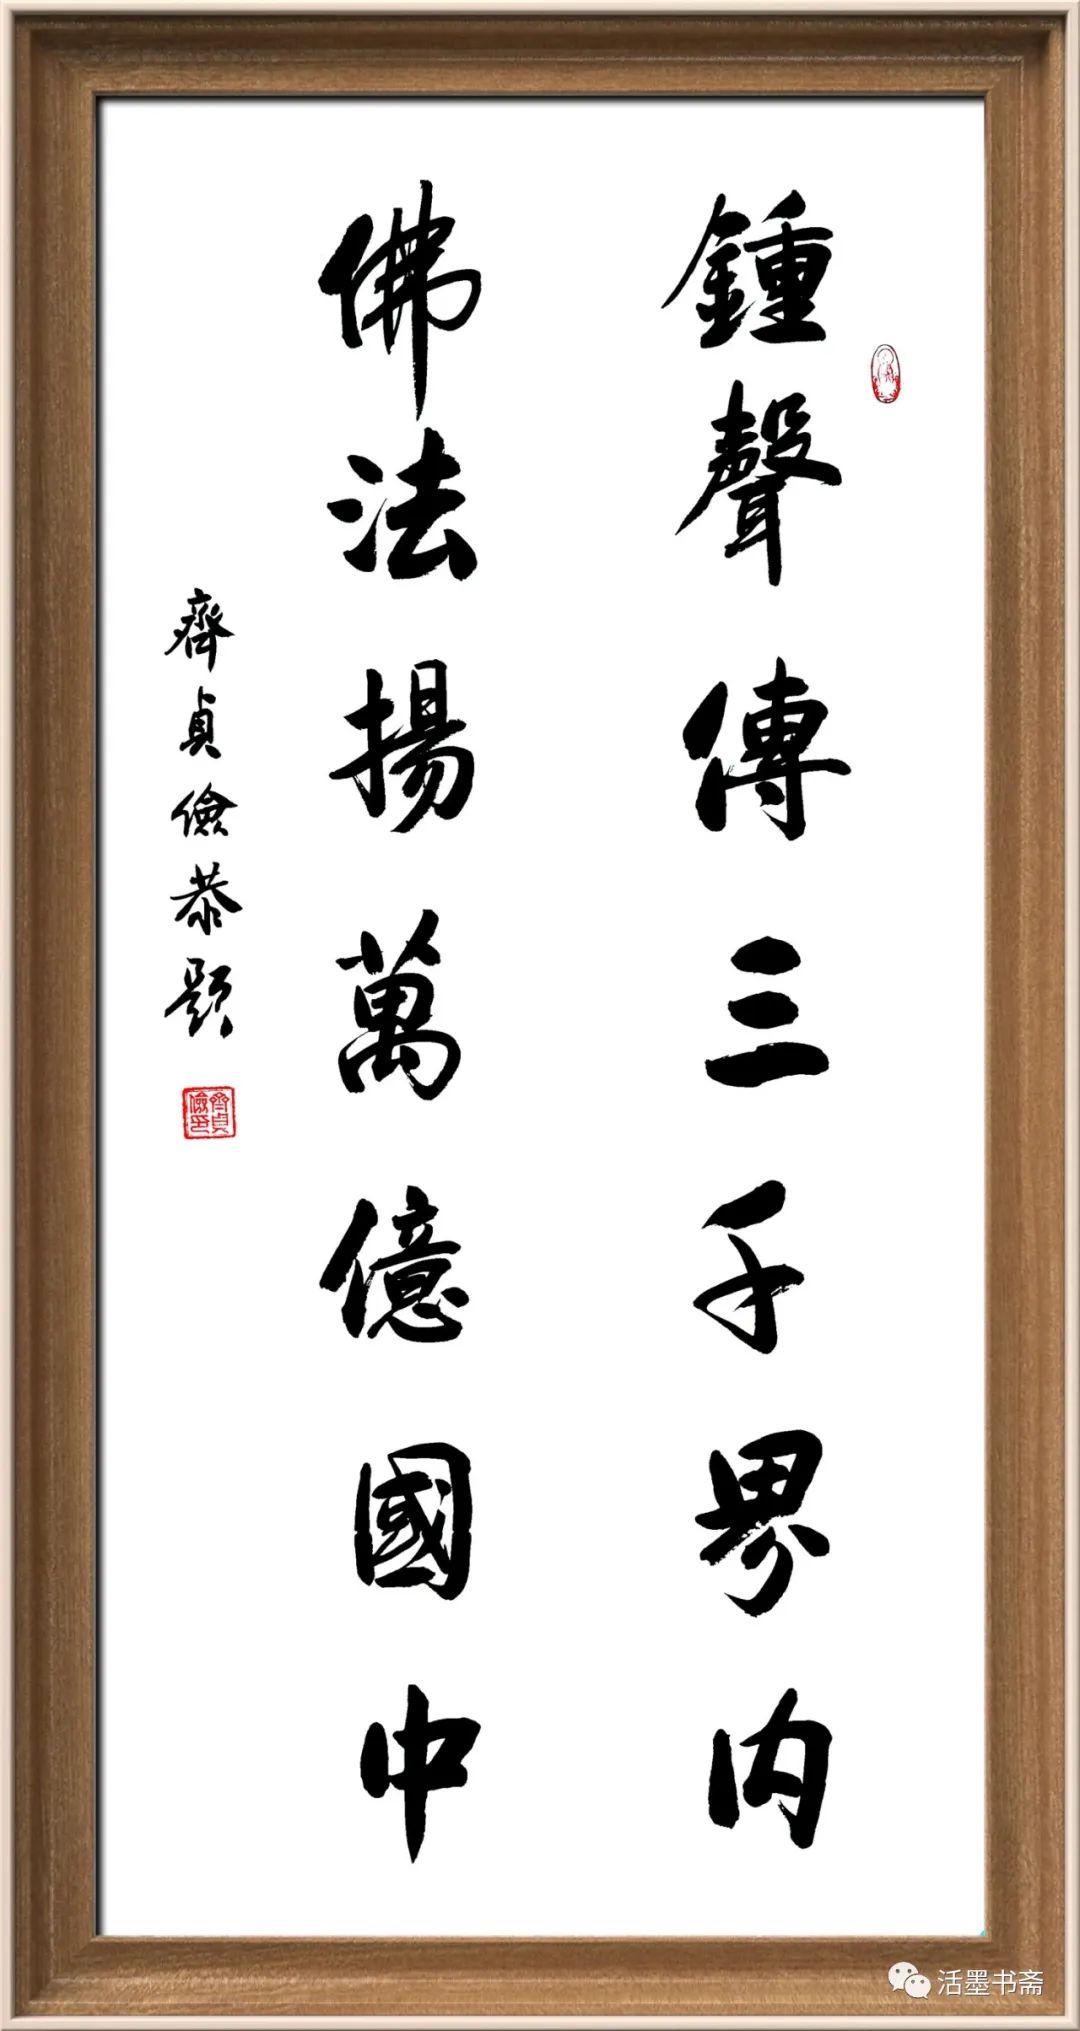 鍾聲傳三千界内
佛法揚萬億國中
齊貞儉恭題
齊貞儉印
活墨书斋